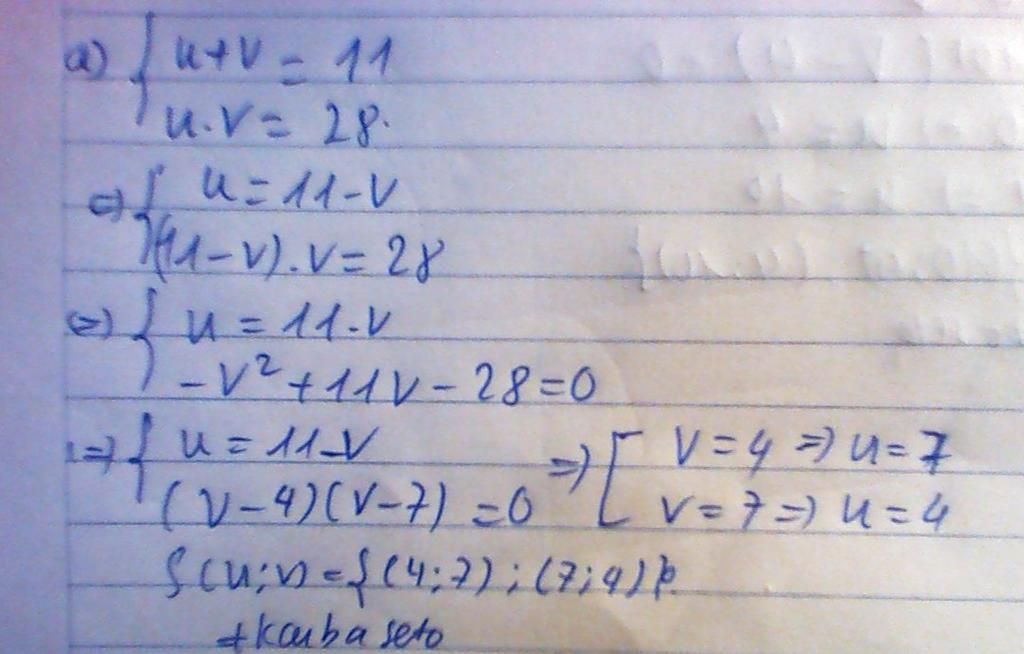 a) { u+v = 11
u.v = 28.
=> { u = 11-v
(11-v).v = 28
(=) { u = 11-v
-v²+11v-28=0
=> { u = 11-v
(v-4)(v-7) =0 => [ v=4 => u=7
v=7 => u=4
{(u;v) = {(4;7);(7;4)}.